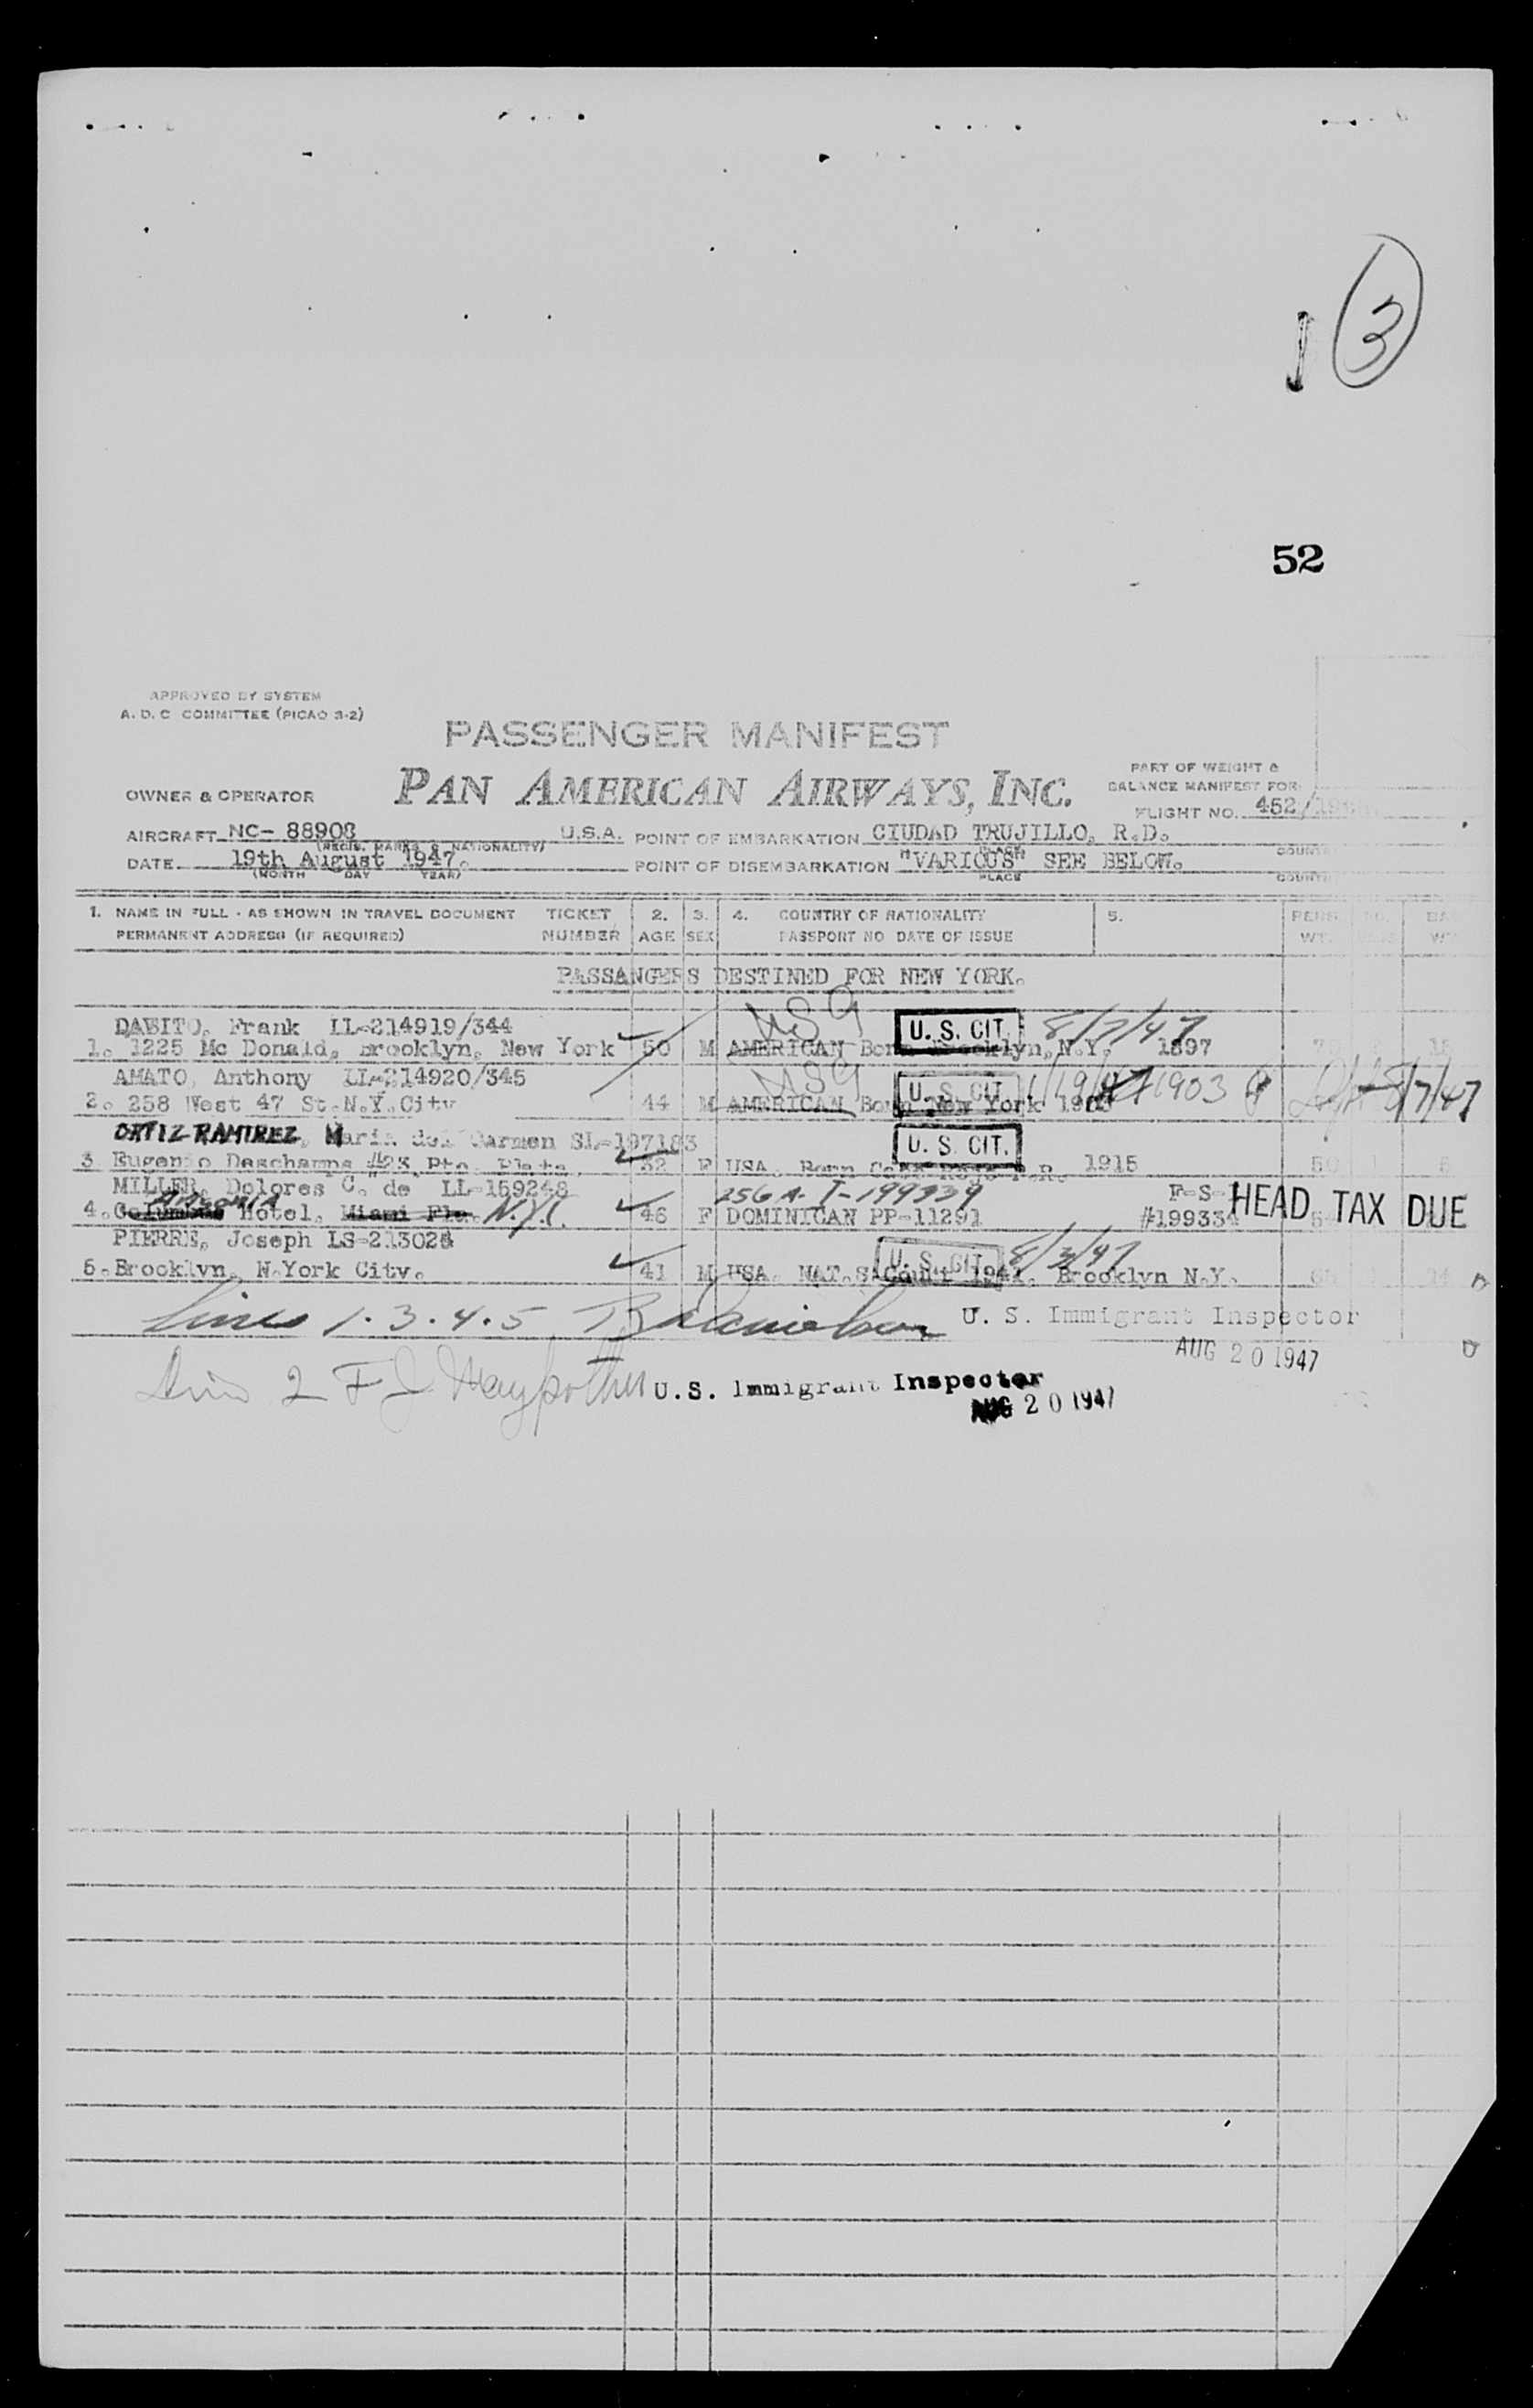 3
52
APPROVED BY SYSTEM
A. D. C COMMITTEE (PICAO 3-2)
PASSENGER MANIFEST
PAN AMERICAN AIRWAYS, INC.
PART OF WEIGHT &
BALANCE MANIFEST FOR
OWNER & OPERATOR
FLIGHT NO. 452/
AIRCRAFT NC- 88908 U.S.A. POINT OF EMBARKATION CIUDAD TRUJILLO, R.D.
(REGIS. MARKS & NATIONALITY) PLACE
DATE 19th August 1947. POINT OF DISEMBARKATION "VARIOUS" SEE BELOW.
(MONTH DAY YEAR) PLACE
1. NAME IN FULL - AS SHOWN IN TRAVEL DOCUMENT TICKET 2. 3. 4. COUNTRY OF NATIONALITY 5. PERS.
PERMANENT ADDRESS (IF REQUIRED) NUMBER AGE SEX PASSPORT NO DATE OF ISSUE WT.
PASSANGERS DESTINED FOR NEW YORK.
DABITO, Frank LL-214919/344 U. S. CIT. 8/7/47
1. 1225 Mc Donald, Brooklyn, New York 50 M AMERICAN Born Brooklyn, N.Y. 1897
AMATO, Anthony LL-214920/345 U. S. CIT 1903 8/7/47
2. 258 West 47 St. N.Y. City 44 M AMERICAN Born New York
ORTIZ RAMIREZ, Maria del Carmen SL-197183 U. S. CIT.
3 Eugenio Deschamps #23 Pto. Plata. 32 F USA. Born 1915
MILLER, Dolores C. de LL-159248 256 A. T-199339 F-S- HEAD TAX DUE
4. ANSONIA Hotel, Miami Fla. N.Y.C. 46 F DOMINICAN PP-11291 #199334
PIERRE, Joseph LS-213028 U. S. CIT 8/3/47
5. Brooklyn, N.York City. 41 M USA. NAT. Brooklyn N.Y.
Lines 1. 3. 4. 5 U. S. Immigrant Inspector
AUG 20 1947
Line 2 U.S. Immigrant Inspector
AUG 20 1947